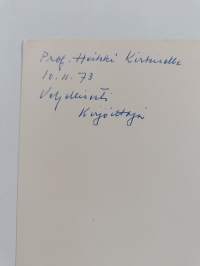 Prof. Heikki Kirkinelle
10.11.73
Veljellisesti
Kirjoittaja